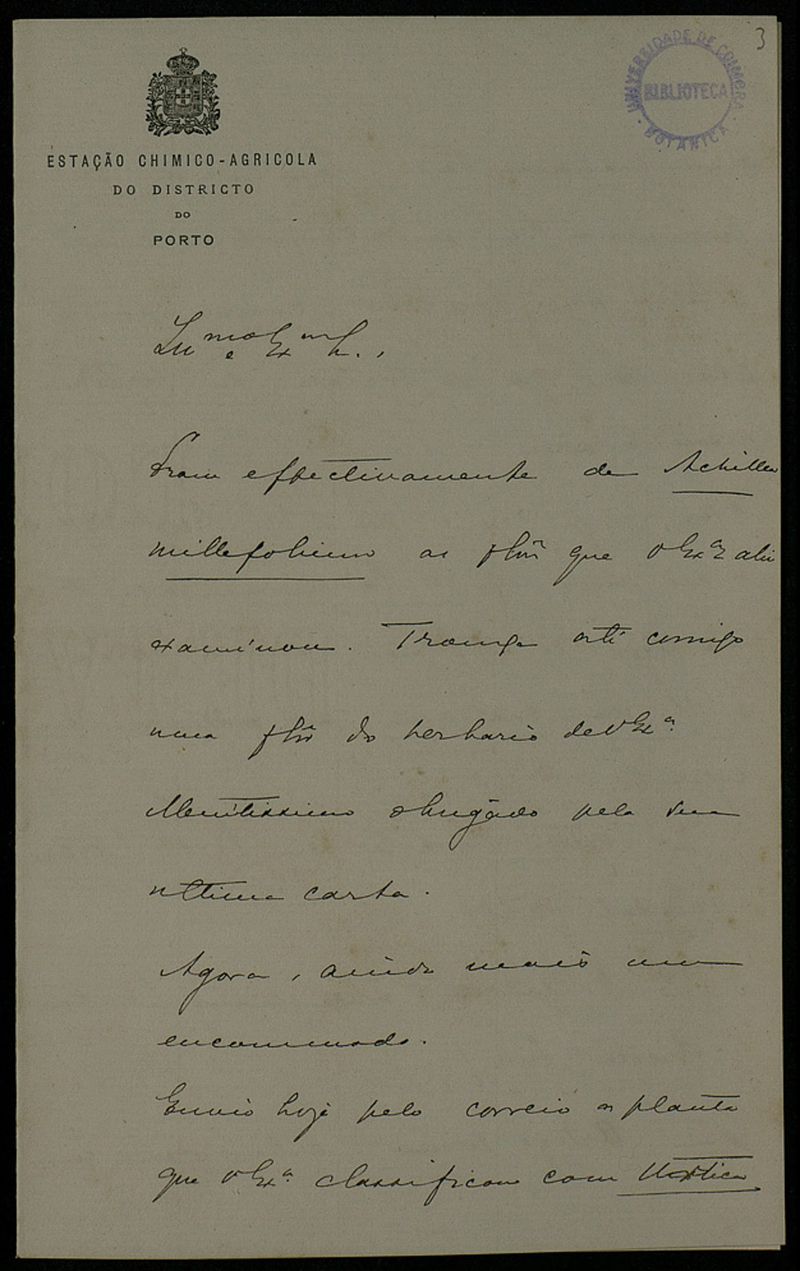 3
UNIVERSIDADE DE COIMBRA
BIBLIOTECA
BOTANICA
ESTAÇÃO CHIMICO-AGRICOLA
DO DISTRICTO
DO
PORTO
Ill.mo e Ex.mo Sr.,
Eram effectivamente de Achillea
millefolium as que V Exª ahi
examinou. Trouxe até comigo
uma flôr do herbario de V Exª.
Muitissimo obrigado pela sua
ultima carta.
Agora, ainda mais um
encommodo.
Envio hoje pelo correio a planta
que V Exª classificou com Urtica